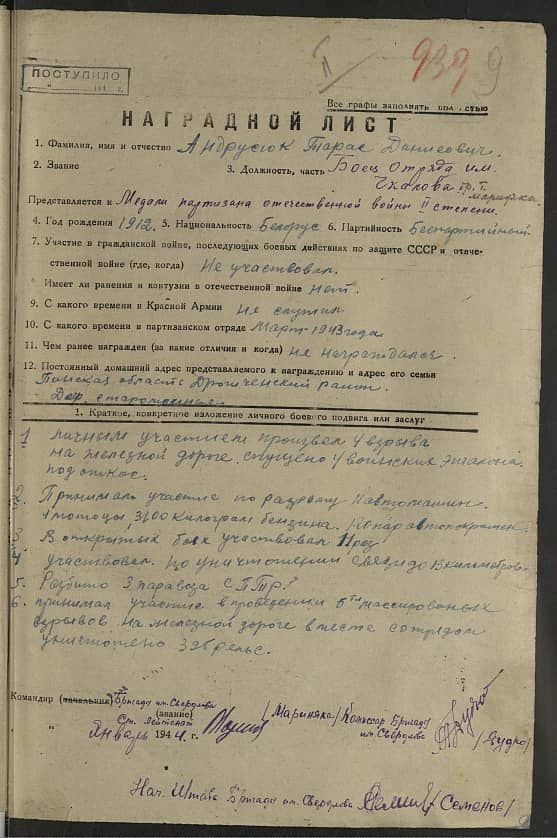 II
939
9
ПОСТУПИЛО
194 г.
Все графы заполнять полностью
НАГРАДНОЙ ЛИСТ
1. Фамилия, имя и отчество Андрусюк Тарас Данисович.
2. Звание 3. Должность, часть Боец отряда им.
Чкалова гр. т. Мариняка.
Представляется к Медали партизана отечественной войны II степени.
4. Год рождения 1912. 5. Национальность Белорус 6. Партийность Беспартийный.
7. Участие в гражданской войне, последующих боевых действиях по защите СССР и отече-
ственной войне (где, когда) Не участвовал.
Имеет ли ранения и контузии в отечественной войне нет.
9. С какого времени в Красной Армии не служил
10. С какого времени в партизанском отряде Март-1943 года.
11. Чем ранее награжден (за какие отличия и когда) не награждался.
12. Постоянный домашний адрес представляемого к награждению и адрес его семьи
Пинская область Дрогиченский район.
Дер.
1. Краткое, конкретное изложение личного боевого подвига или заслуг
1 личным участием произвел 4 взрыва
на железной дороге спущено 4 воинских эшалона.
под откос.
2. Принимал участие по разгрому автомашин.
1 мотоцы, 3400 килограм бензина. 120 пар автопокрышек.
3. В открытых боях участвовал 11 раз
4 участвовал. по уничтожении связи до 8 километров.
5. Разбито 3 паравоза с ПТР.
6. принимал участие в проведении 5ти массированых
взрывов на железной дороге вместе сотрядом
уничтожено 326 рельс.
Командир (начальник) Бригады им. Свердлова
(звание)
Ст. лейтенант
Январь 1944 г. /Мариняка/ Комиссар Бригады
им. Свердлова /Дудко/
Нач. Штаба Бригады им. Свердлова /Семенов/